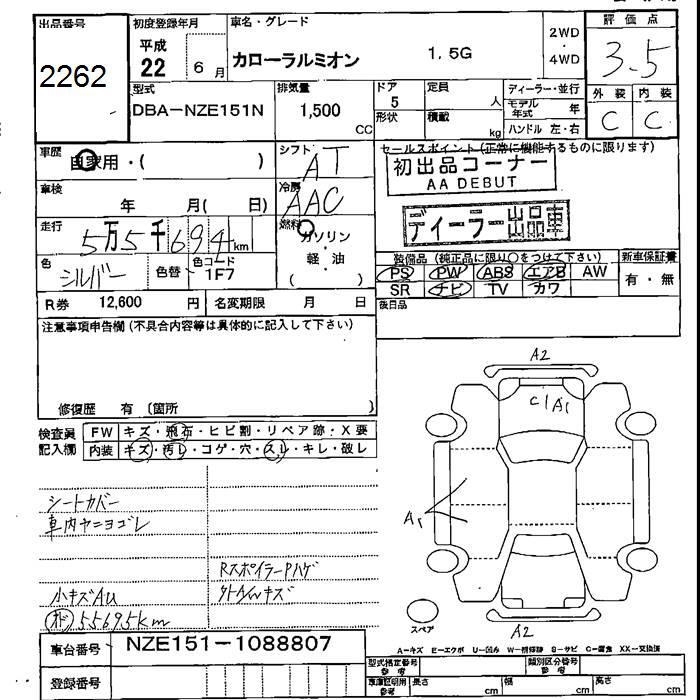 出品番号 初度登録年月 車名・グレード 評価点
2262
平成 22 6月 カローラルミオン 1.5G 2WD・4WD 3.5
型式 排気量 ドア 定員 ディーラー・並行 外装 内装
DBA-NZE151N 1,500 CC 5 人 モデル年式 年 C C
形状 積載 kg ハンドル 左・右
車歴 自家用・( ) シフト AT セールスポイント(正常に機能するものに限ります)
初出品コーナー
AA DEBUT
車検 年 月( 日) 冷房 AAC
ディーラー出品車
走行 5万5千694km 燃料 ガソリン・軽・油 ( )
色 シルバー 色替 色コード 1F7
装備品(純正品に限り○をつけて下さい) 新車保証書
PS PW ABS エアB AW 有・無
SR ナビ TV カワ
R券 12,600 円 名変期限 月 日 後日品
注意事項申告欄(不具合内容等は具体的に記入して下さい)
修復歴 有 (箇所 )
検査員記入欄 FW キズ・飛石・ヒビ割・リペア跡・X要
内装 キズ・汚レ・コゲ・穴・スレ・キレ・破レ
A2
C1 A1
A1
シートカバー
車内ヤニヨゴレ
RスポイラーPハゲ
小キズAU
オド 55695km
スペア
A2
車台番号 NZE151-1088807
A-キズ E-エクボ U-凹み W-補修跡 S-サビ C-腐食 XX-交換済
登録番号
型式指定番号 参考 類別区分番号 参考
車庫証明用 参考 長さ cm 幅 cm 高さ cm